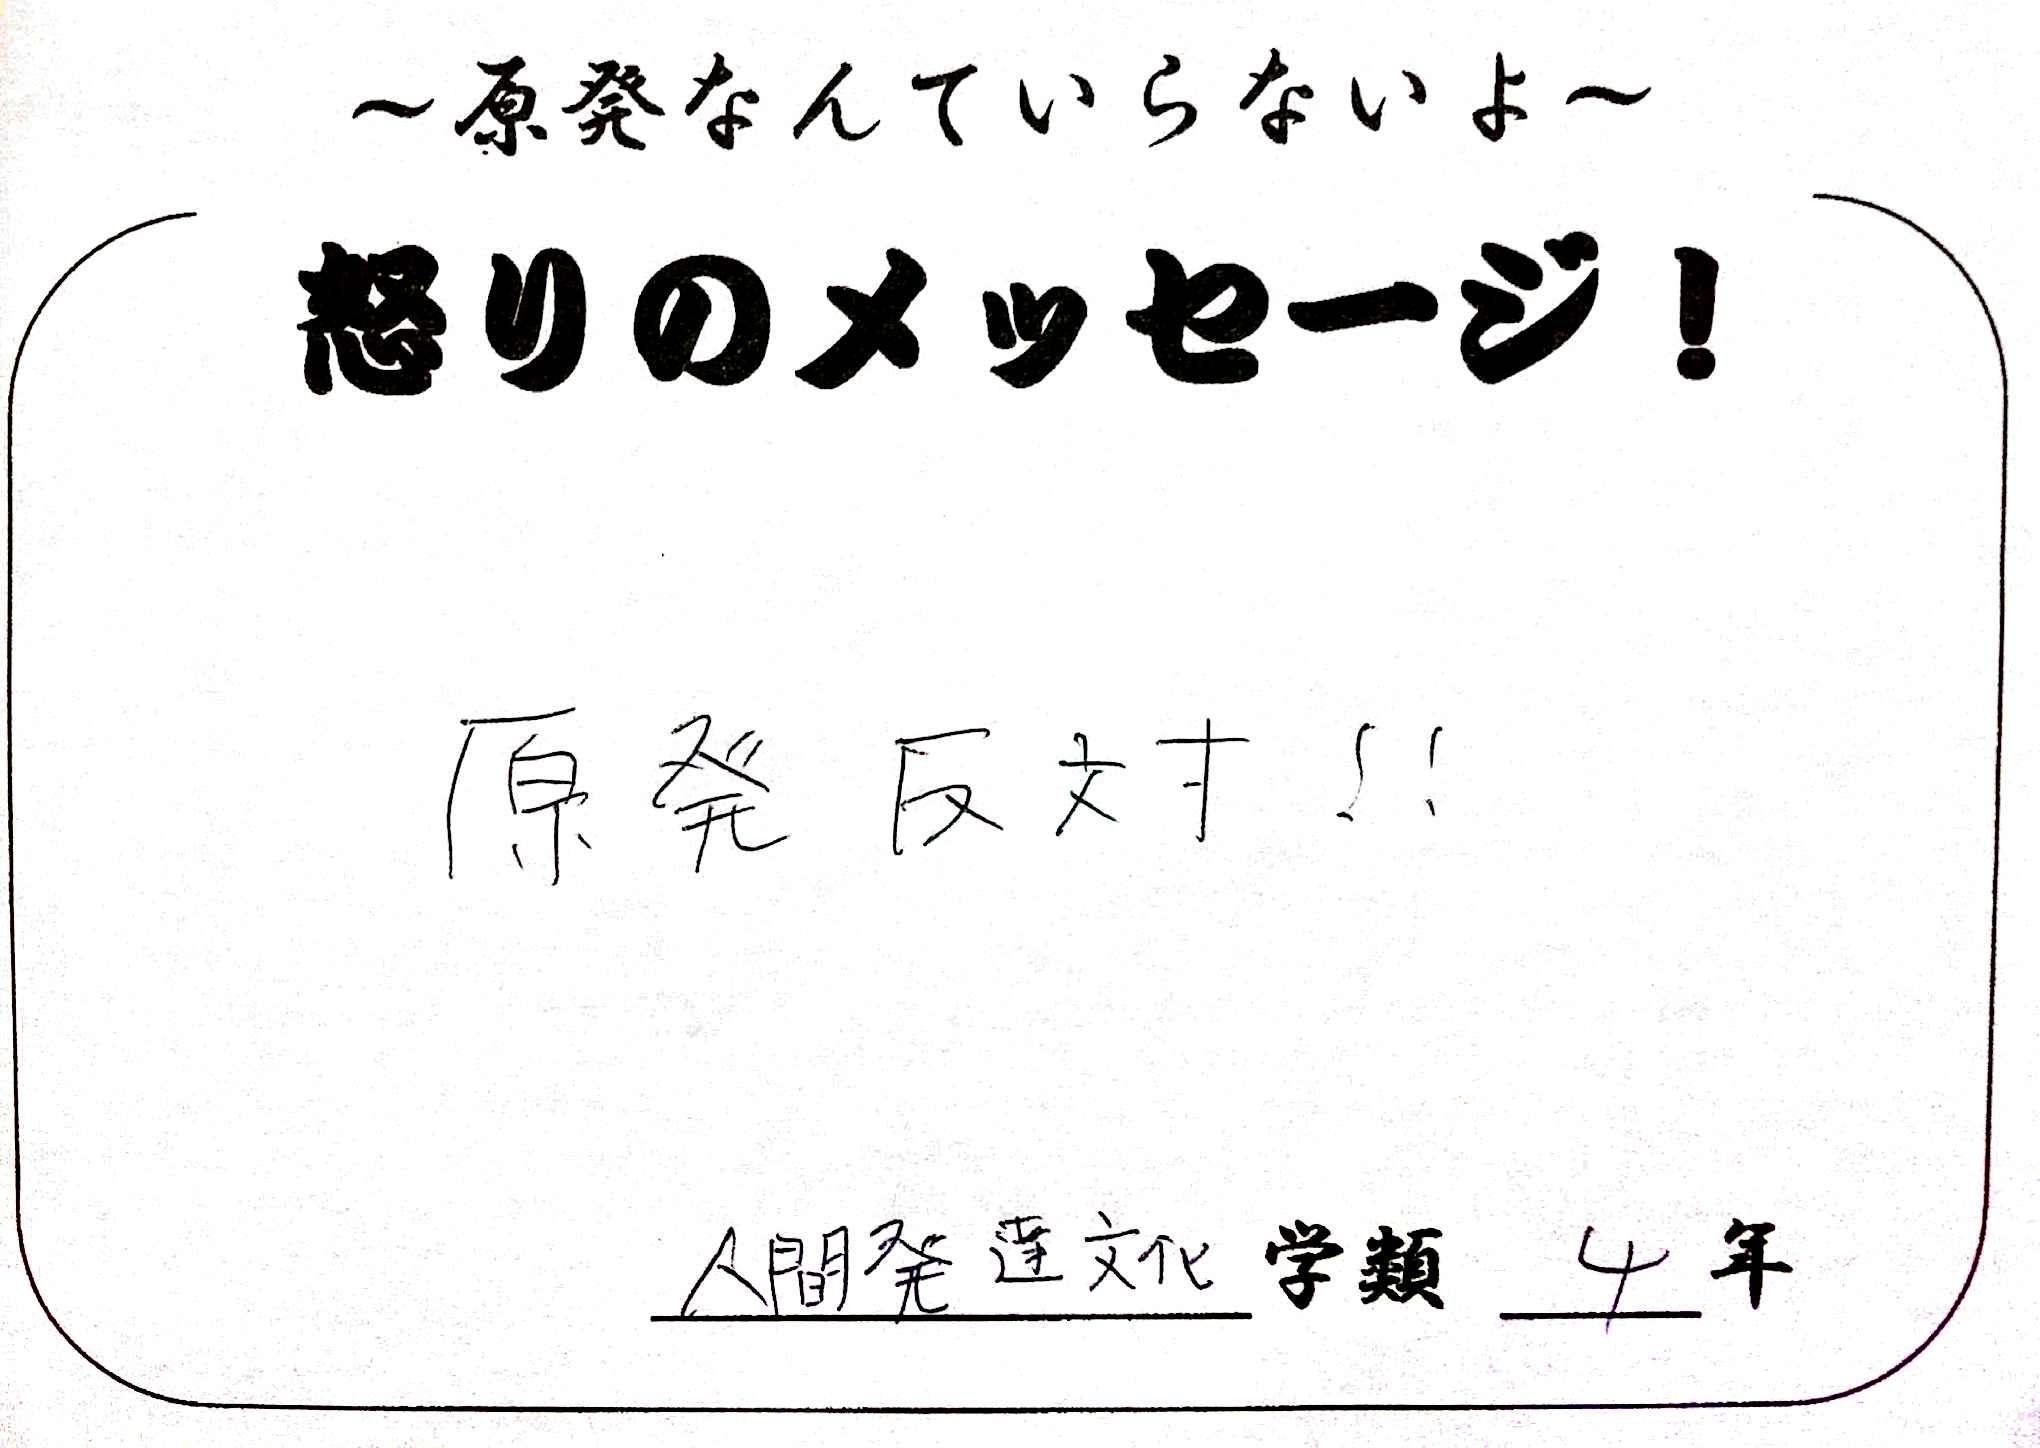 ～原発なんていらないよ～
怒りのメッセージ！
原発反対！！
人間発達文化学類 4年